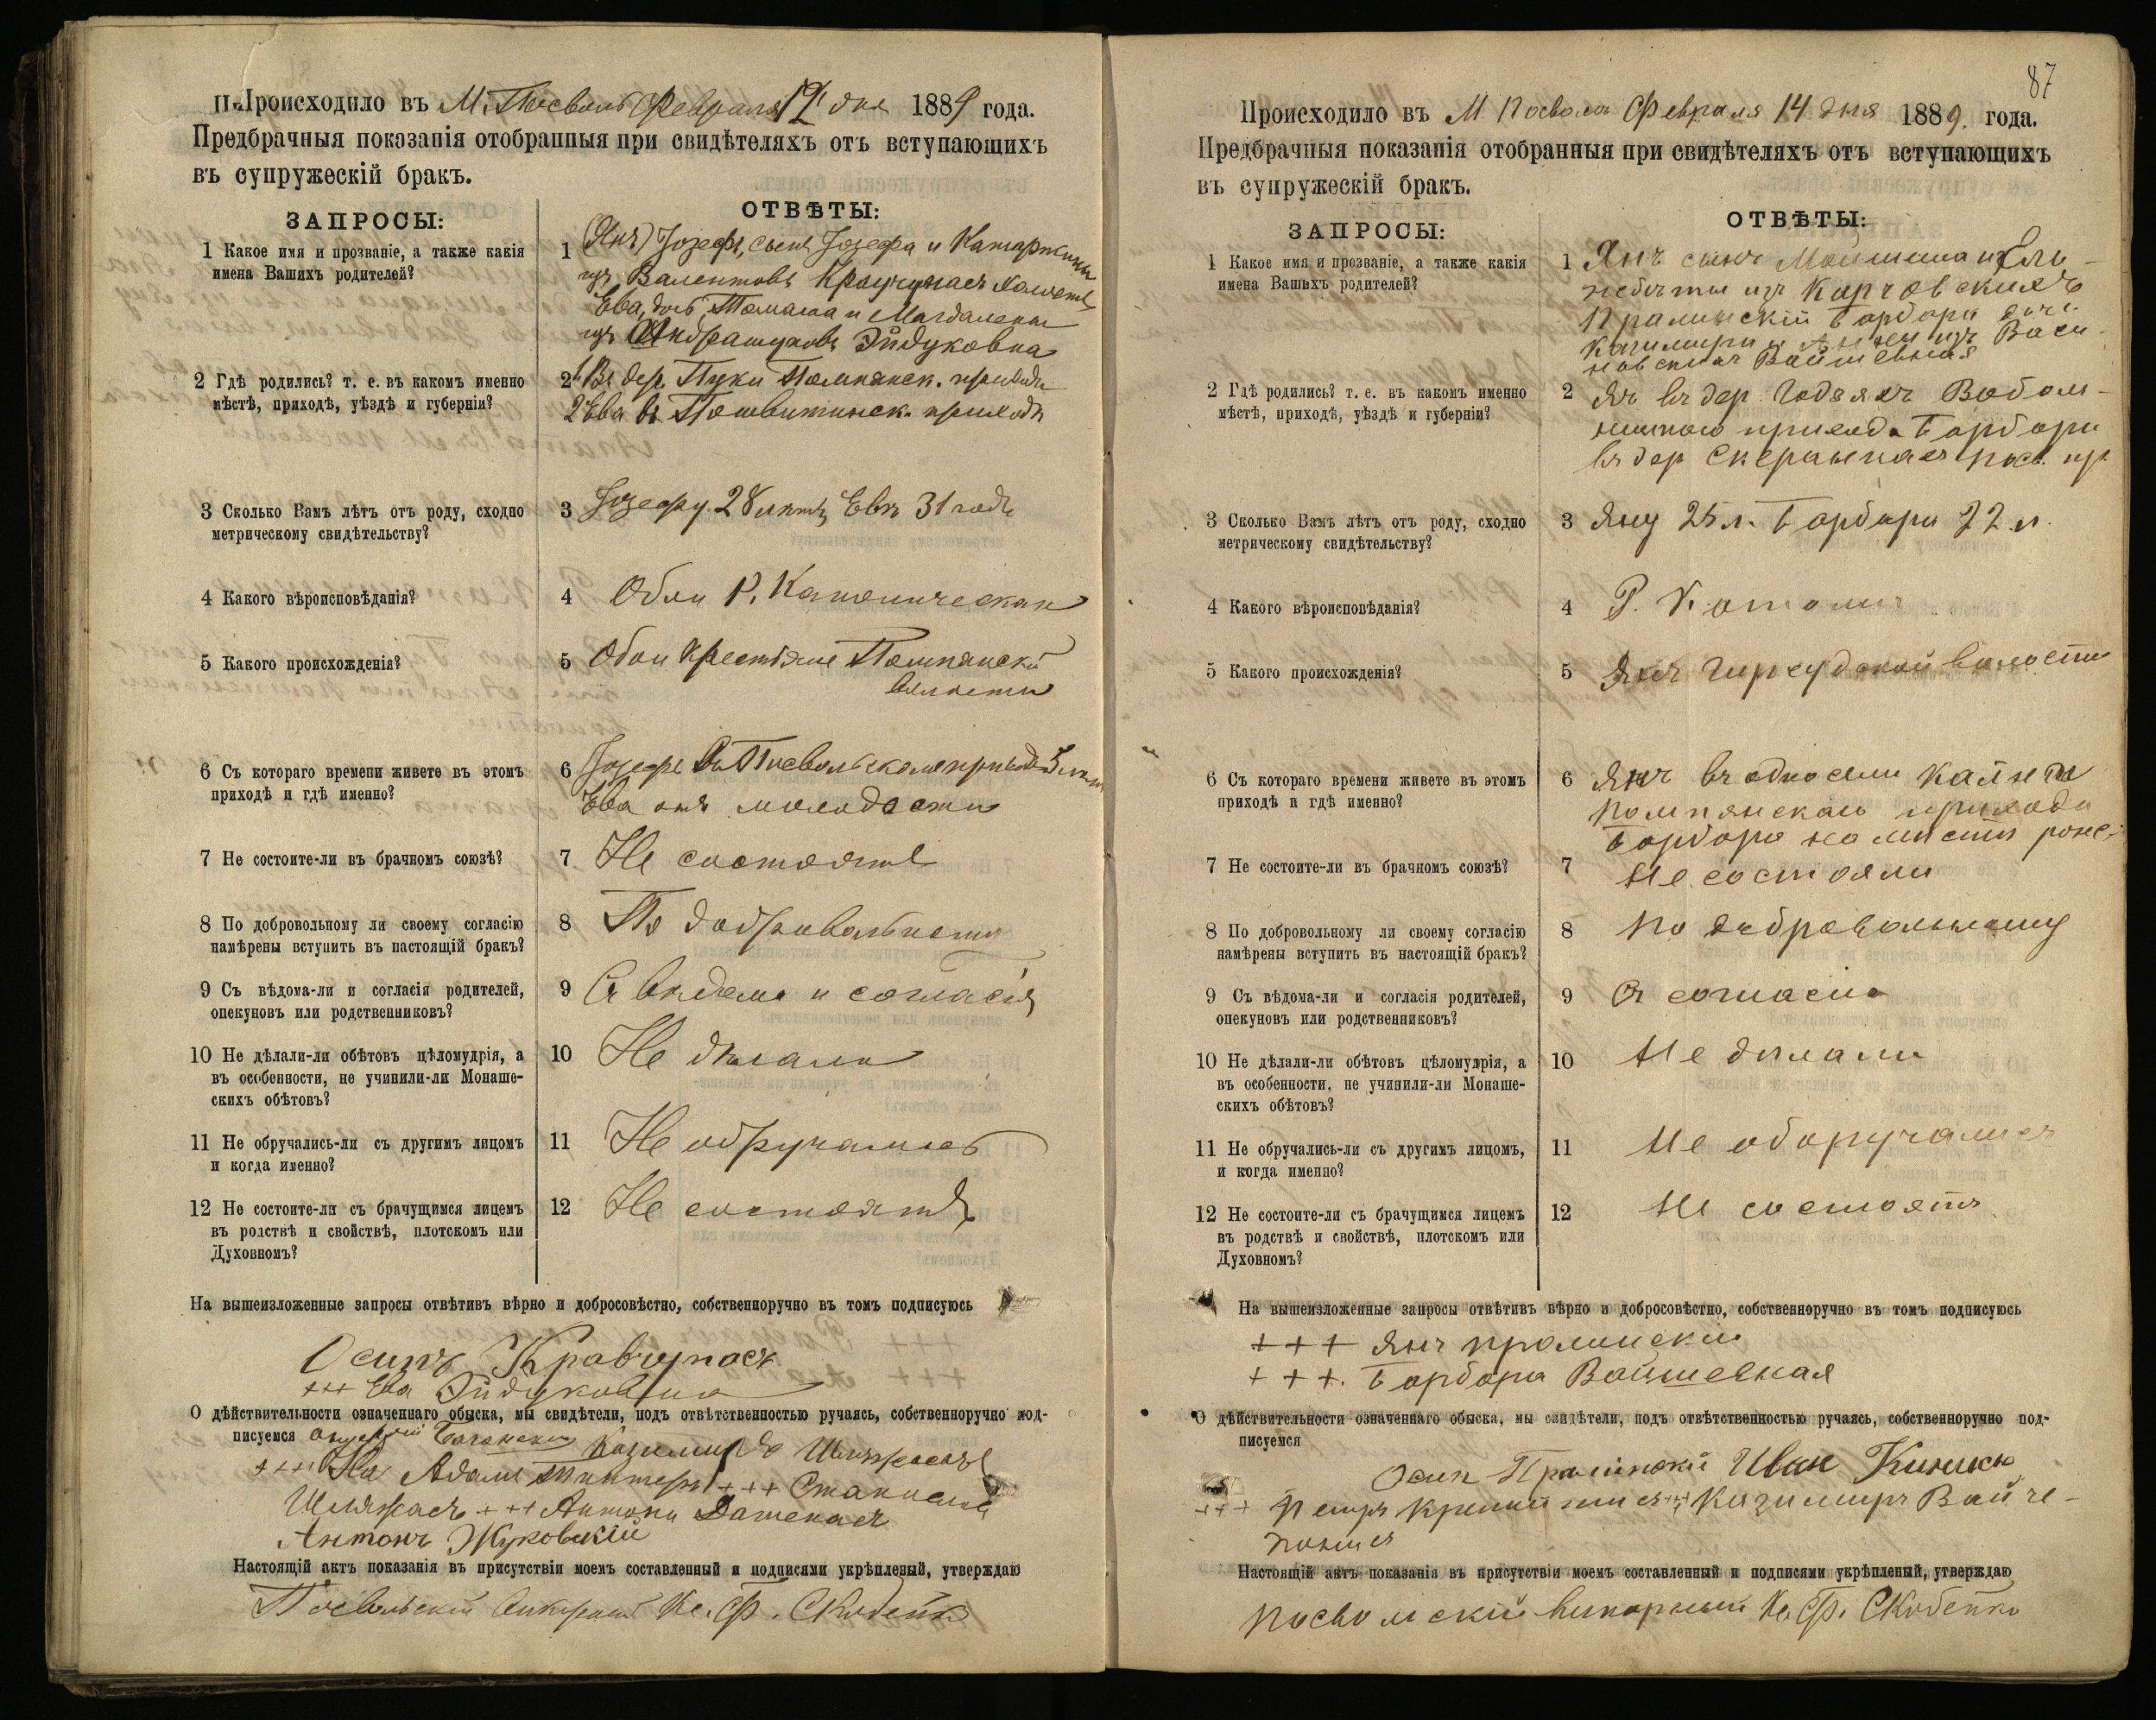 Происходило въ М. Посволь Февраля 12 дня 1889 года.
Предбрачныя показанія отобранныя при свидѣтеляхъ отъ вступающихъ
въ супружескій бракъ.
ЗАПРОСЫ:
ОТВѢТЫ:
1 Какое имя и прозваніе, а также какія
имена Вашихъ родителей?
1 (Янъ) Іозефъ, сынъ Іозефа и Катаржины
изъ Валентовъ Кравчунасъ
Ева, дочь Томаша и Магдалены
изъ Андрашуновъ Эйдуковна
2 Гдѣ родились? т. е. въ какомъ именно
мѣстѣ, приходѣ, уѣздѣ и губерніи?
2 Въ дер. Пуки Помпянск. прихода
2 Ева въ Пошвитинск. приходѣ
3 Сколько Вамъ лѣтъ отъ роду, сходно
метрическому свидѣтельству?
3 Іозефу 28 лѣтъ, Евѣ 31 годъ
4 Какого вѣроисповѣданія?
4 Обои Р. Католическаго
5 Какого происхожденія?
5 Обои Крестьяне Помпянской
волости
6 Съ котораго времени живете въ этомъ
приходѣ и гдѣ именно?
6 Іозефъ въ Посвольскомъ приходѣ 5 лѣтъ
Ева отъ молодости
7 Не состоите-ли въ брачномъ союзѣ?
7 Не состоятъ
8 По добровольному ли своему согласію
намѣрены вступить въ настоящій бракъ?
8 По добровольному
9 Съ вѣдома-ли и согласія родителей,
опекуновъ или родственниковъ?
9 Съ вѣдома и согласія
10 Не дѣлали-ли обѣтовъ цѣломудрія, а
въ особенности, не учинили-ли Монаше-
скихъ обѣтовъ?
10 Не дѣлали
11 Не обручались-ли съ другимъ лицомъ
и когда именно?
11 Не обручались
12 Не состоите-ли съ брачущимся лицемъ
въ родствѣ и свойствѣ, плотскомъ или
Духовномъ?
12 Не состоятъ
На вышеизложенные запросы отвѣтивъ вѣрно и добросовѣстно, собственноручно въ томъ подписуюсь
Осипъ Кравчунасъ
+++ Ева Эйдуковна
О дѣйствительности означеннаго обыска, мы свидѣтели, подъ отвѣтственностью ручаясь, собственноручно под-
писуемся Казимиръ
+++ Адамъ +++ Станиславъ
+++ Антони
Антонъ Жуковскій
Настоящій актъ показанія въ присутствіи моемъ составленный и подписями укрѣпленый, утверждаю
Посвольскій Викарный Кс. Ф. Скобейко
87
Происходило въ М. Посволь Февраля 14 дня 1889. года.
Предбрачныя показанія отобранныя при свидѣтеляхъ отъ вступающихъ
въ супружескій бракъ.
ЗАПРОСЫ:
ОТВѢТЫ:
1 Какое имя и прозваніе, а также какія
имена Вашихъ родителей?
1 Янъ сынъ и Ель-
жбѣты изъ Карчовскихъ
Пралинскій Барбара дочь
Казимира и Анны изъ Васи-
новскихъ Войшевная
2 Гдѣ родились? т. е. въ какомъ именно
мѣстѣ, приходѣ, уѣздѣ и губерніи?
2 Янъ въ дер. Вобольницкаго прихода Барбара
въ дер пос. пр.
3 Сколько Вамъ лѣтъ отъ роду, сходно
метрическому свидѣтельству?
3 Яну 25 л. Барбари 22 л.
4 Какого вѣроисповѣданія?
4 Р. Католич
5 Какого происхожденія?
5 Янъ волости
6 Съ котораго времени живете въ этомъ
приходѣ и гдѣ именно?
6 Янъ въ
помпянскаго прихода
Барбара на мѣстѣ
7 Не состоите-ли въ брачномъ союзѣ?
7 Не состояли
8 По добровольному ли своему согласію
намѣрены вступить въ настоящій бракъ?
8 По добровольному
9 Съ вѣдома-ли и согласія родителей,
опекуновъ или родственниковъ?
9 Съ согласія
10 Не дѣлали-ли обѣтовъ цѣломудрія, а
въ особенности, не учинили-ли Монаше-
скихъ обѣтовъ?
10 Не дѣлали
11 Не обручались-ли съ другимъ лицомъ,
и когда именно?
11 Не оборучались
12 Не состоите-ли съ брачущимся лицемъ
въ родствѣ и свойствѣ, плотскомъ или
Духовномъ?
12 Не состоятъ
На вышеизложенные запросы отвѣтивъ вѣрно и добросовѣстно, собственноручно въ томъ подписуюсь
+++ Янъ Пралинскій
+++. Барбара Войшевная
О дѣйствительности означеннаго обыска, мы свидѣтели, подъ отвѣтственностью ручаясь, собственноручно под-
писуемся
Осип Пралинскій Иван
+++ Петръ +++ Казимиръ
Настоящій актъ показанія въ присутствіи моемъ составленный и подписями укрѣпленый, утверждаю
Посвольскій викарный Кс. Ф. Скобейко